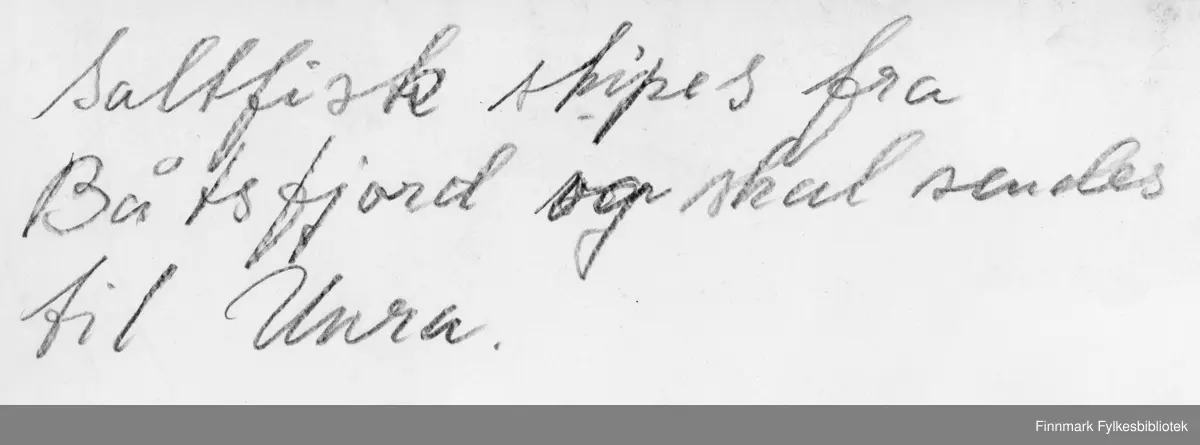 Saltfisk skipes fra
Båtsfjord og skal sendes
til Unra.
Finnmark Fylkesbibliotek